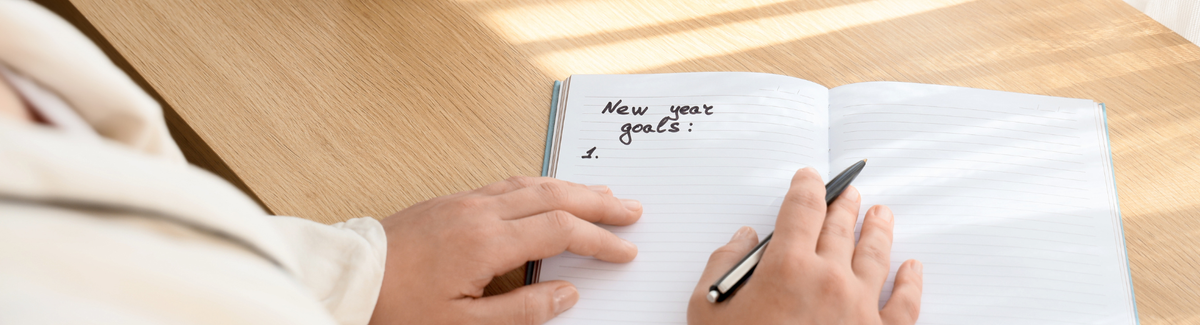 New year
goals:
1.